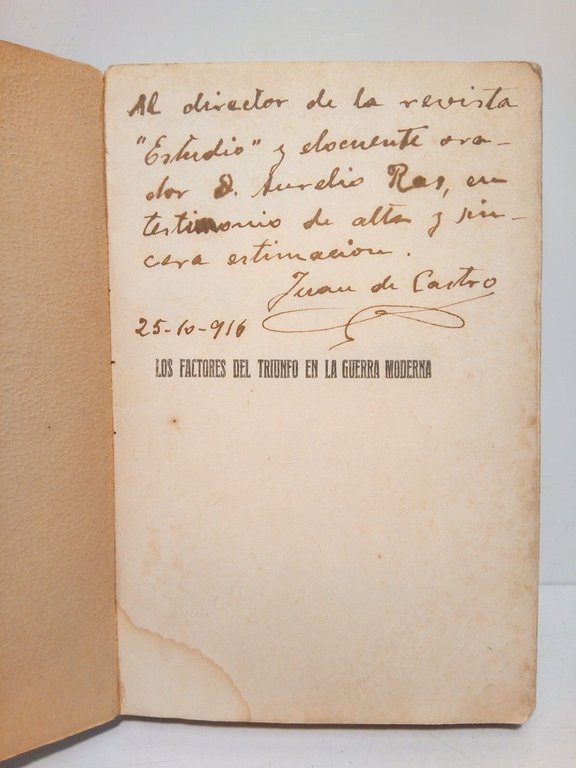 Al director de la revista
"Estudio" y elocuente ora-
dor D. Aurelio Ras, en
testimonio de alta y sin-
cera estimación.
Juan de Castro
25-10-916
LOS FACTORES DEL TRIUNFO EN LA GUERRA MODERNA